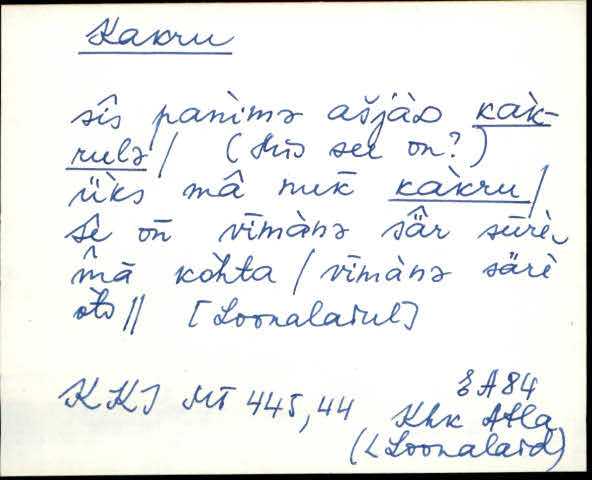 Kakru
sîs panìmə ašjàD kàk-
rulə / (Mis see on?)
ǜks mâ nuk̄ kàkru /
sê on̄ vīmànə sǟr sūrè
m̂ā kòhta / vīmànə särè
ots // [Loonalaiul]
KKI MT 445, 44
EA84
Khk Atla
(< Loonalaid)